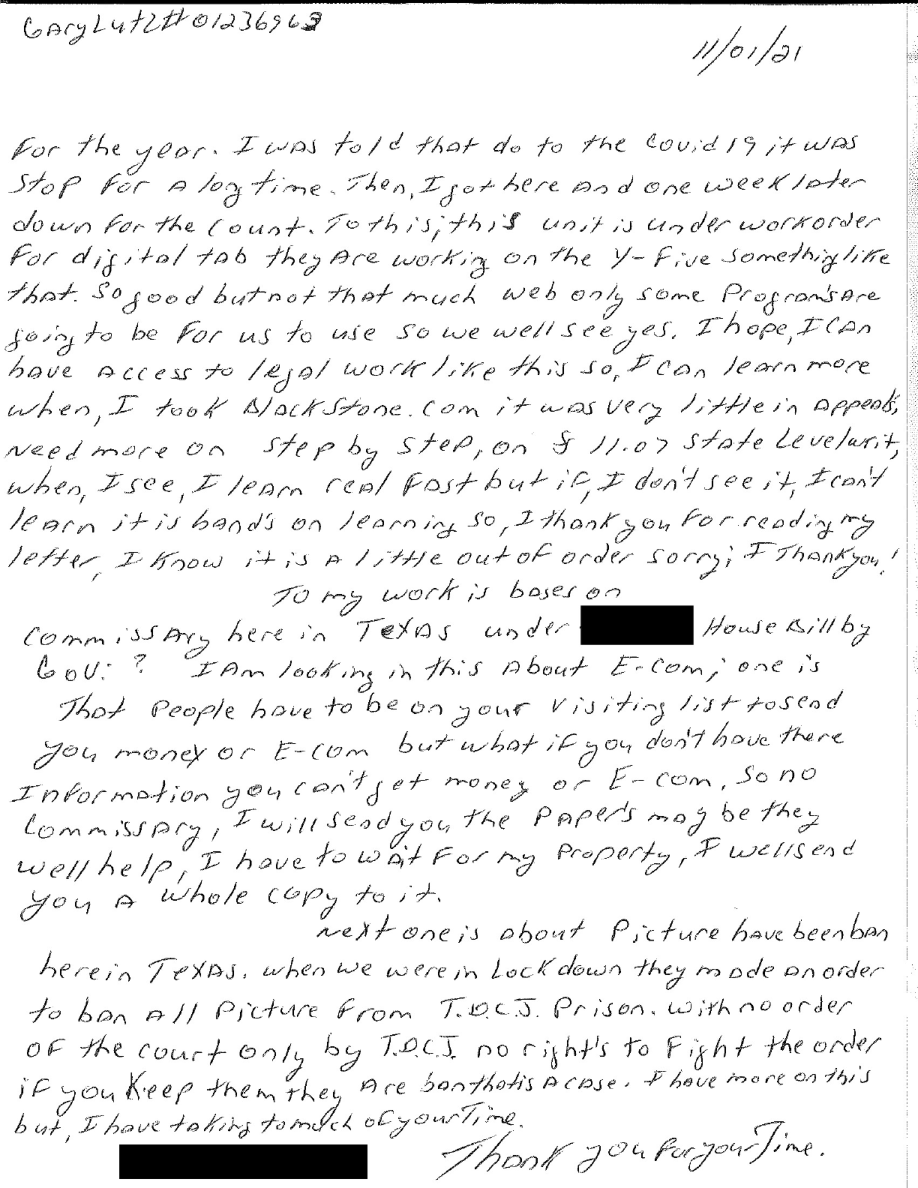 Gary Lutz# 01236963
11/01/21
For the year. I was told that do to the Covid 19 it was
stop for a log time. Then, I got here and one week later
down for the count. To this; this unit is under workorder
for digital tab they are working on the Y-Five somethig like
that. So good but not that much web only some Program's are
going to be for us to use so we well see yes. I hope, I can
have access to legal work like this so, I can learn more
when, I took BlackStone.com it was very little in appeals,
need more on step by step, on § 11.07 State Level writ,
when, I see, I learn real fast but if, I don't see it, I can't
learn it is hand's on learning so, I thank you for reading my
letter, I know it is a little out of order sorry; I Thank you!
To my work is bases on
Commissary here in Texas under House Bill by
Gov: ? I am looking in this about E-com; one is
That People have to be on your visiting list to send
you money or E-com but what if you don't have there
Information you can't get money or E-com, so no
Commissary, I will send you the Paper's may be they
well help, I have to wait for my Property, I well send
you a whole copy to it.
Next one is about Picture have been ban
here in Texas. when we were in Lock down they made an order
to ban all Picture from T.D.C.J. Prison. with no order
of the court only by T.D.C.J. no right's to Fight the order
if you keep them they are ban that is a case. I have more on this
but, I have taking to much of your Time.
Thank you for your Time.